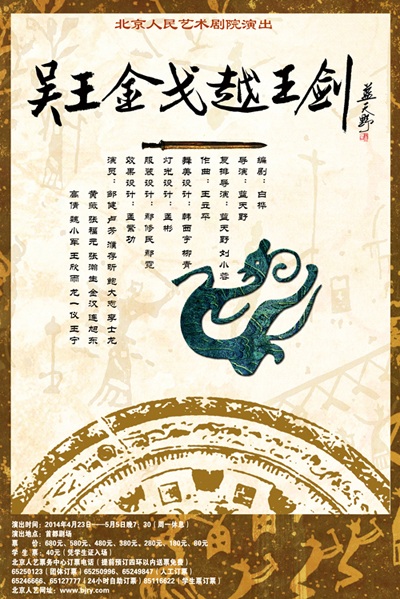 北京人民艺术剧院演出
吴王金戈越王剑
蓝天野
编剧：白桦
导演：蓝天野
复排导演：蓝天野 刘小蓉
作曲：王立平
舞美设计：韩西宇 柳青
灯光设计：孟彬
服装设计：鄢修民 鄢霓
效果设计：孟繁功
演员：邹健 卢芳 濮存昕 鲍大志 李士龙
黄薇 张福元 张瀚生 金汉 连旭东
高倩 魏小军 王欣雨 龙一仪 王宁
演出时间：2014年4月23日——5月5日晚7：30（周一休息）
演出地点：首都剧场
票 价：680元、580元、480元、380元、280元、180元、80元
学 生 票：40元（凭学生证入场）
北京人艺票务中心订票电话（提前预订四环以内送票免费）
65250123（团体订票）65250996、65249847（人工订票）
65246666、65127777（24小时自助订票）85116622（学生票订票）
北京人艺网址：www.bjry.com